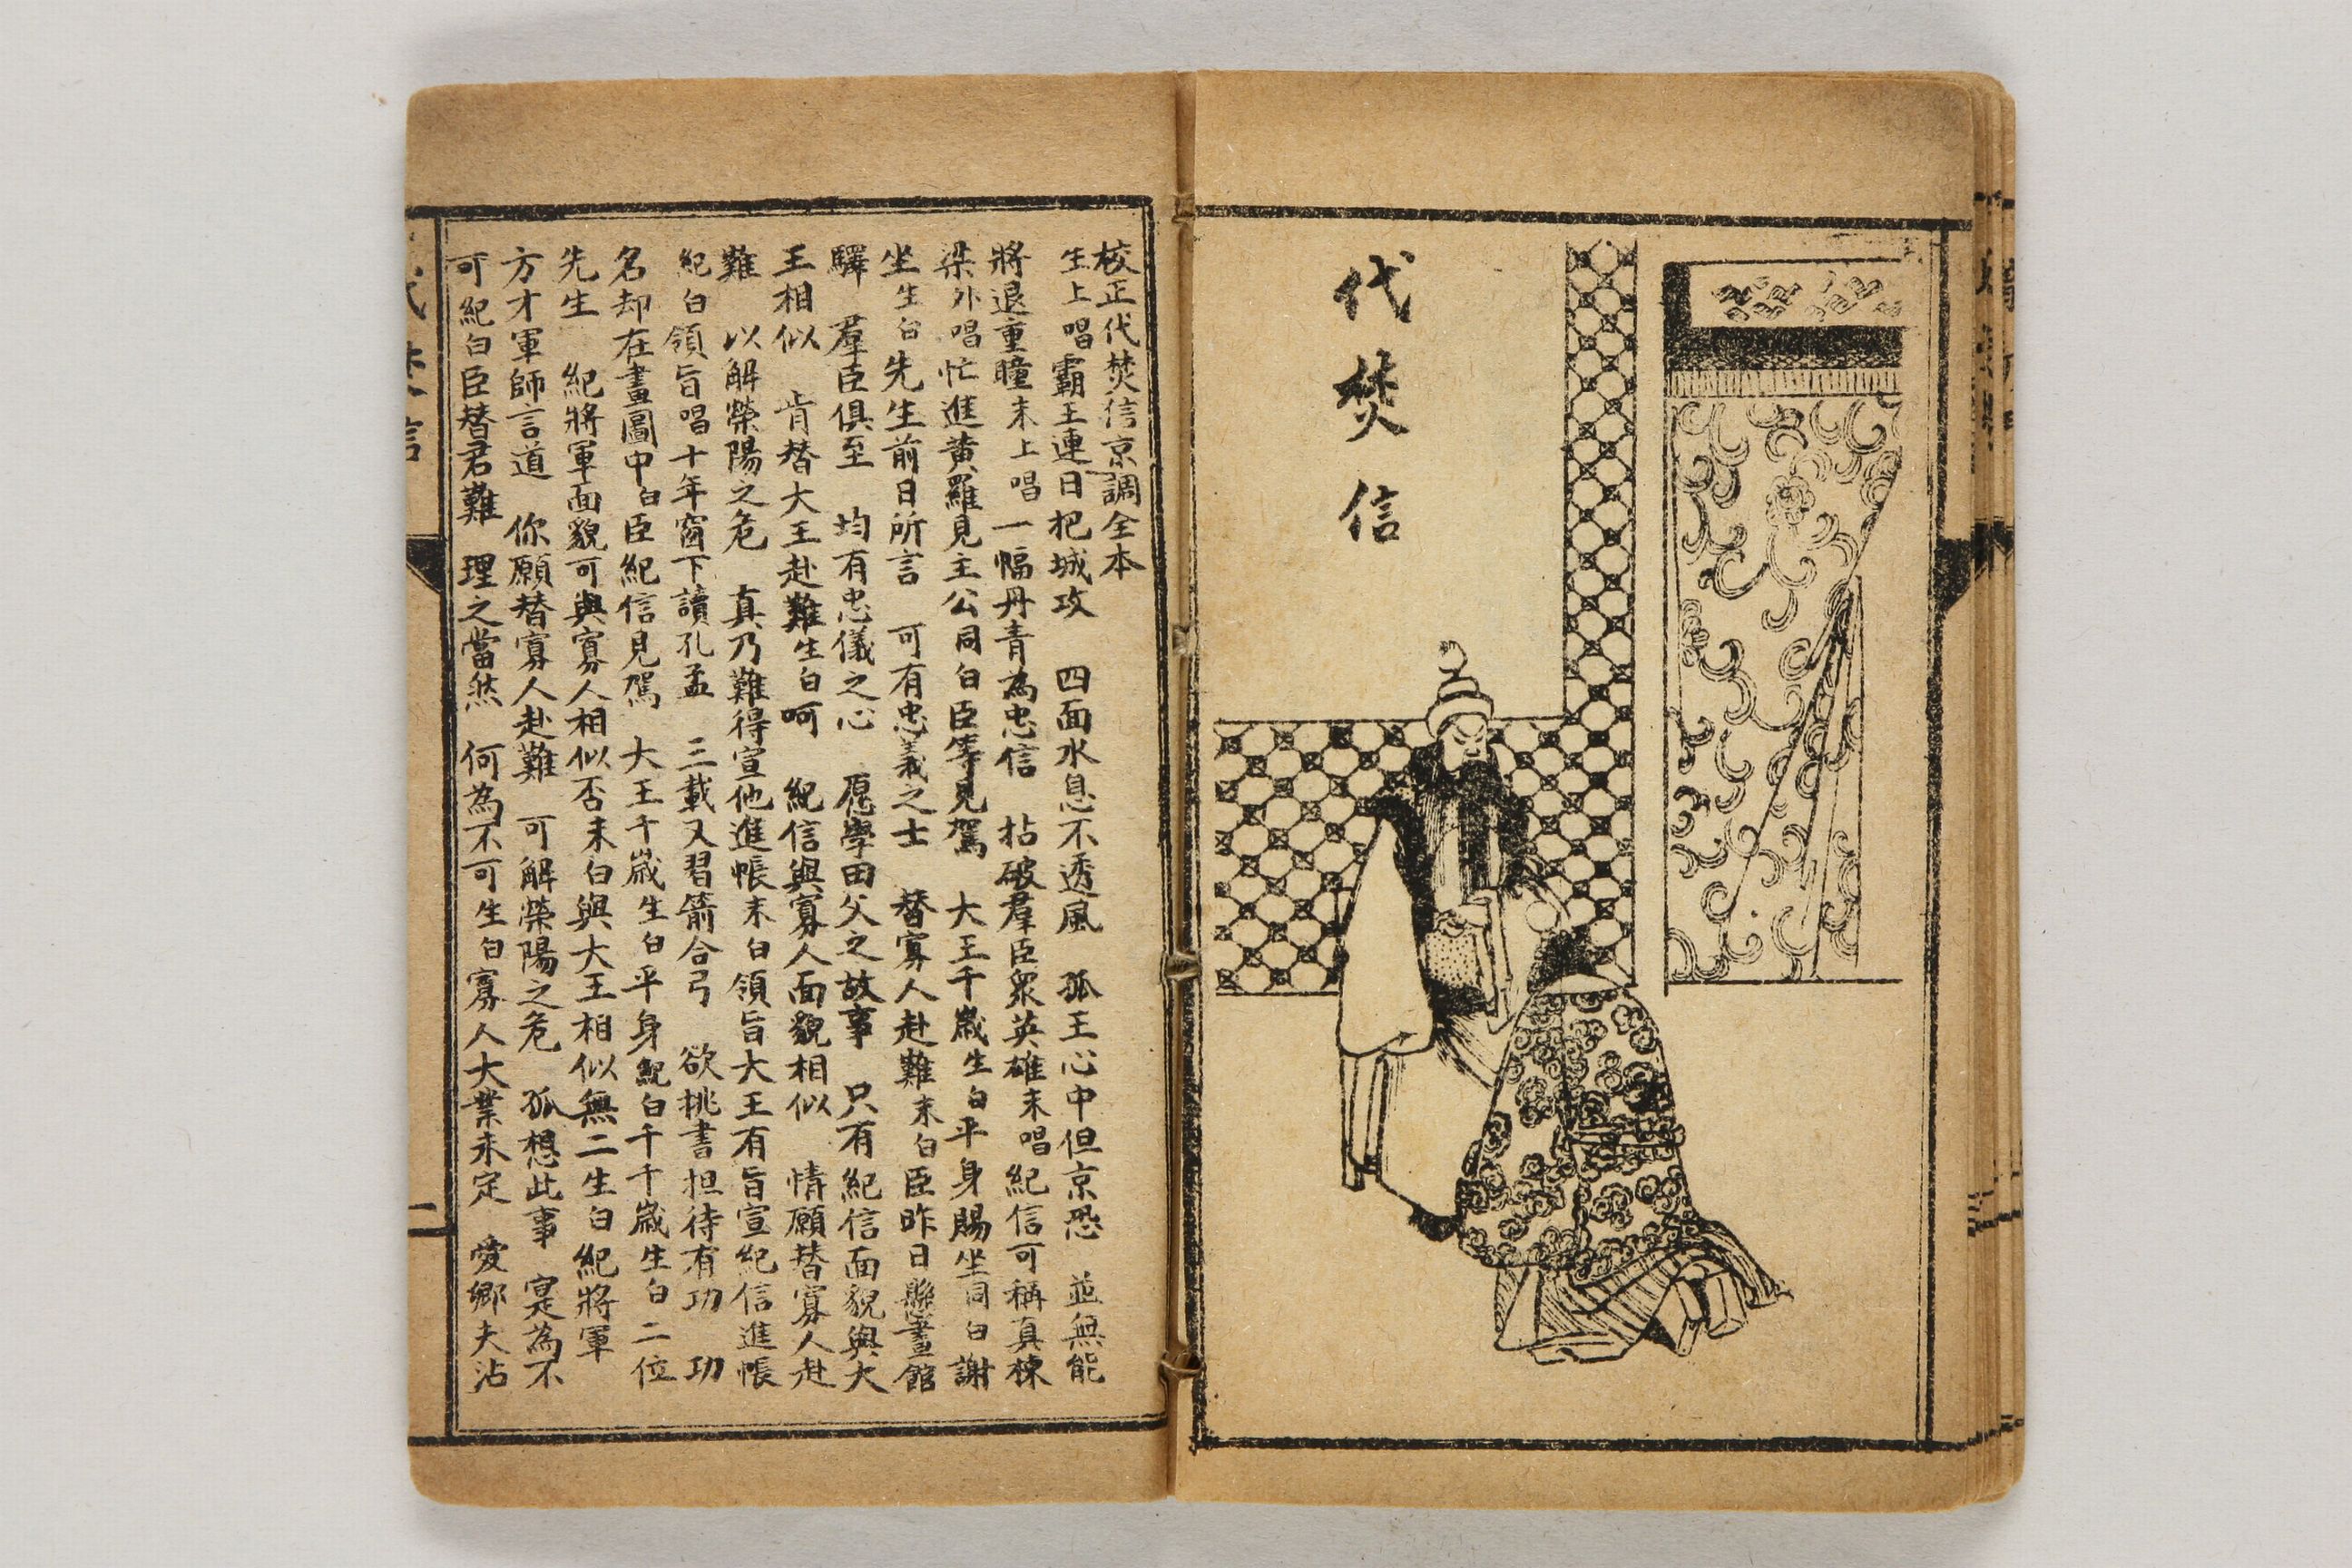 代焚信
校正代焚信京調全本
生上唱霸王連日把城攻 四面水息不透風 孤王心中但京恐 並無能
將退重瞳末上唱一幅丹青為忠信 拈破羣臣衆英雄末唱紀信可稱真棟
梁外唱忙進黄羅見主公同白臣等見駕 大王千歲生白平身賜坐同白謝
坐生白先生前日所言 可有忠義之士 替寡人赴難末白臣昨日懸畫館
驛 羣臣俱至 均有忠儀之心 愿學田父之故事 只有紀信面貌與大
王相似 肯替大王赴難生白呵 紀信與寡人面貌相似 情願替寡人赴
難 以解榮陽之危 真乃難得宣他進帳末白領旨大王有旨宣紀信進帳
紀白領旨唱十年窗下讀孔孟 三載又習箭合弓 欲挑書担待有功 功
名却在畫圖中白臣紀信見駕 大王千歲生白平身紀白千千歲生白二位
先生 紀將軍面貌可與寡人相似否末白與大王相似無二生白紀將軍
方才軍師言道 你願替寡人赴難 可解榮陽之危 孤想此事 寔為不
可紀白臣替君難 理之當然 何為不可生白寡人大業未定 愛鄉夫沾
二